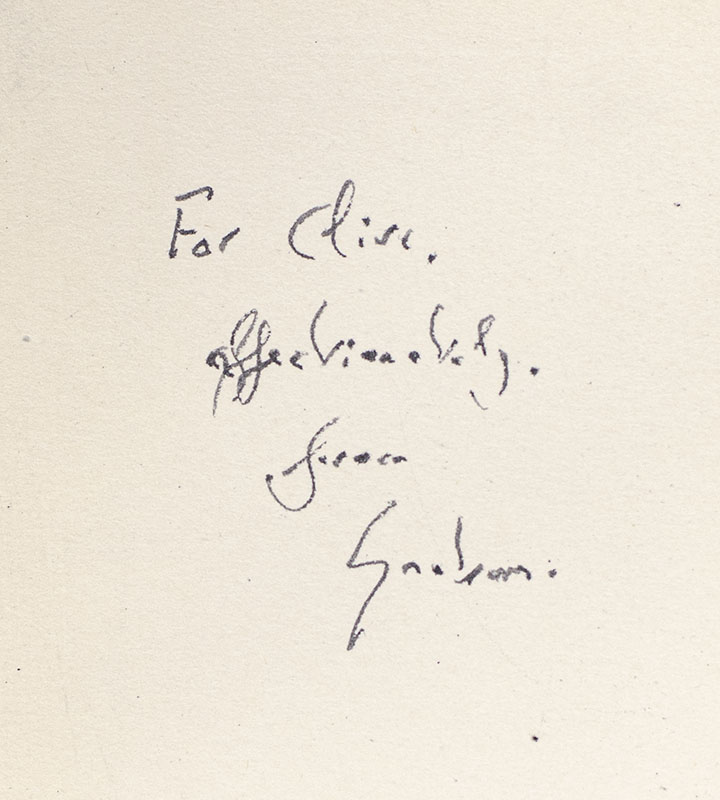 For Clive.
affectionately.
from
Graham.